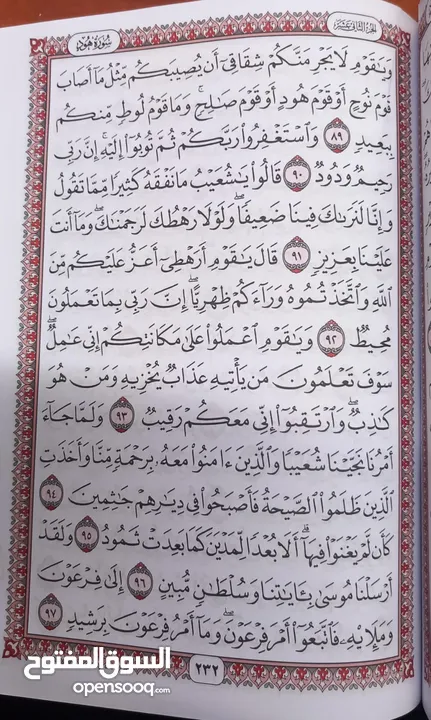 الجزء الثاني عشر
سورة هود
وَيَٰقَوْمِ لَا يَجْرِمَنَّكُمْ شِقَاقِيٓ أَن يُصِيبَكُم مِّثْلُ مَآ أَصَابَ
قَوْمَ نُوحٍ أَوْ قَوْمَ هُودٍ أَوْ قَوْمَ صَٰلِحٍ ۚ وَمَا قَوْمُ لُوطٍ مِّنكُم
بِبَعِيدٍ ٨٩ وَٱسْتَغْفِرُوا۟ رَبَّكُمْ ثُمَّ تُوبُوٓا۟ إِلَيْهِ ۚ إِنَّ رَبِّي
رَحِيمٌ وَدُودٌ ٩٠ قَالُوا۟ يَٰشُعَيْبُ مَا نَفْقَهُ كَثِيرًا مِّمَّا تَقُولُ
وَإِنَّا لَنَرَىٰكَ فِينَا ضَعِيفًا ۖ وَلَوْلَا رَهْطُكَ لَرَجَمْنَٰكَ ۖ وَمَآ أَنتَ
عَلَيْنَا بِعَزِيزٍ ٩١ قَالَ يَٰقَوْمِ أَرَهْطِيٓ أَعَزُّ عَلَيْكُم مِّنَ
ٱللَّهِ وَٱتَّخَذْتُمُوهُ وَرَآءَكُمْ ظِهْرِيًّا ۖ إِنَّ رَبِّي بِمَا تَعْمَلُونَ
مُحِيطٌ ٩٢ وَيَٰقَوْمِ ٱعْمَلُوا۟ عَلَىٰ مَكَانَتِكُمْ إِنِّي عَٰمِلٌ ۖ
سَوْفَ تَعْلَمُونَ مَن يَأْتِيهِ عَذَابٌ يُخْزِيهِ وَمَنْ هُوَ
كَٰذِبٌ ۖ وَٱرْتَقِبُوٓا۟ إِنِّي مَعَكُمْ رَقِيبٌ ٩٣ وَلَمَّا جَآءَ
أَمْرُنَا نَجَّيْنَا شُعَيْبًا وَٱلَّذِينَ ءَامَنُوا۟ مَعَهُۥ بِرَحْمَةٍ مِّنَّا وَأَخَذَتِ
ٱلَّذِينَ ظَلَمُوا۟ ٱلصَّيْحَةُ فَأَصْبَحُوا۟ فِي دِيَٰرِهِمْ جَٰثِمِينَ ٩٤
كَأَن لَّمْ يَغْنَوْا۟ فِيهَآ ۗ أَلَا بُعْدًا لِّمَدْيَنَ كَمَا بَعِدَتْ ثَمُودُ ٩٥ وَلَقَدْ
أَرْسَلْنَا مُوسَىٰ بِـَٔايَٰتِنَا وَسُلْطَٰنٍ مُّبِينٍ ٩٦ إِلَىٰ فِرْعَوْنَ
وَمَلَإِي۟هِۦ فَٱتَّبَعُوٓا۟ أَمْرَ فِرْعَوْنَ ۖ وَمَآ أَمْرُ فِرْعَوْنَ بِرَشِيدٍ ٩٧
٢٣٢
السوق المفتوح
opensooq.com